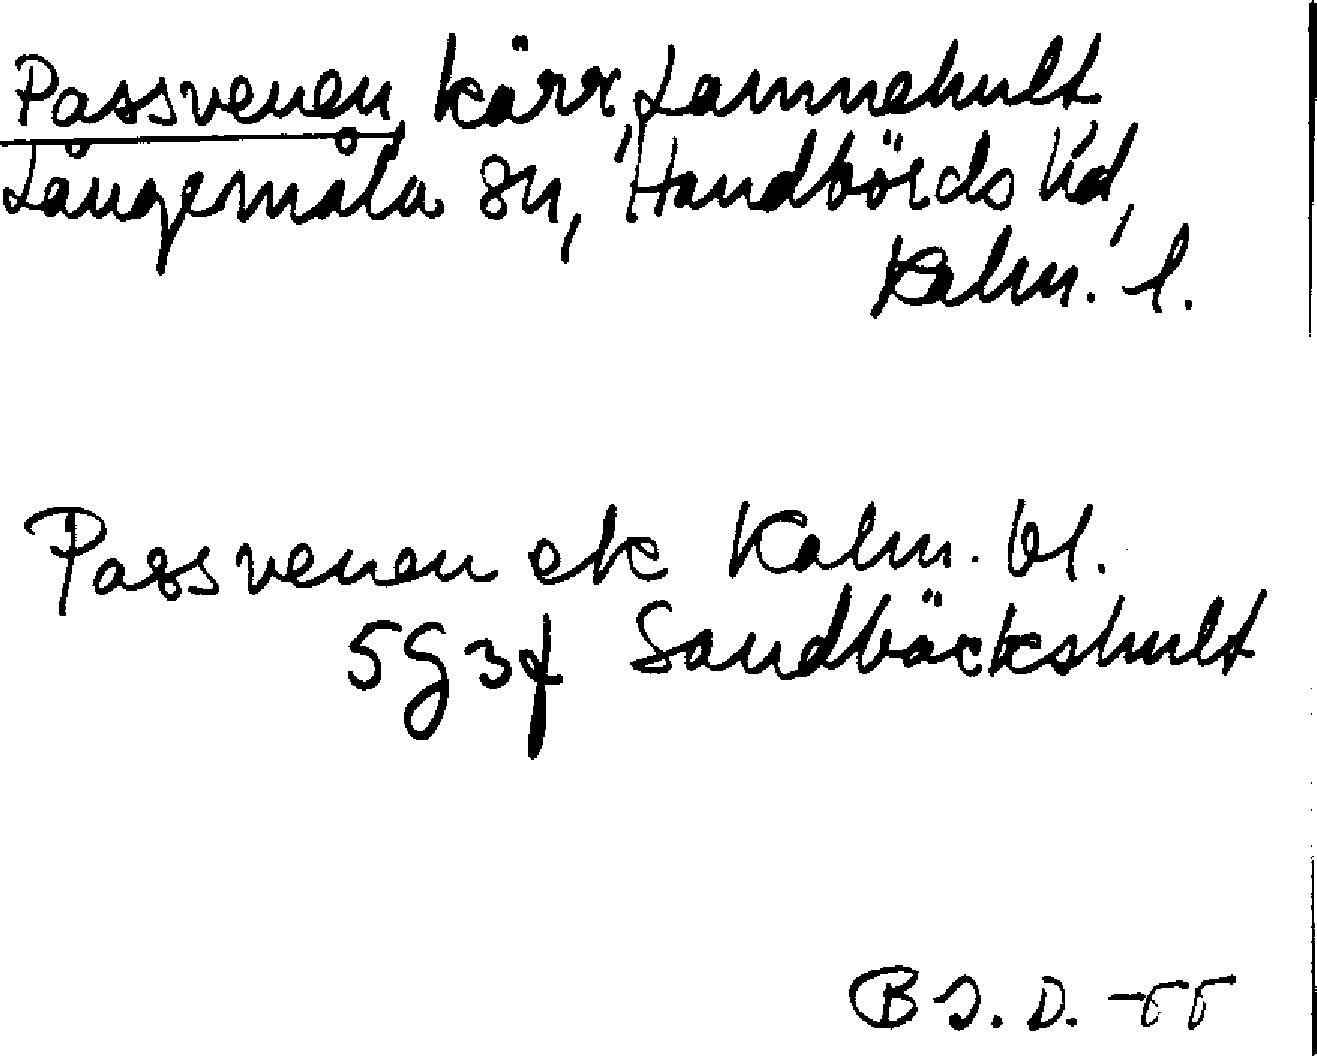 Passvenen, kärr, Lannehult,
Långemåla sn, Handbörds hd,
Kalm. l.
Passvenen ek Kalm. bl.
5G3f Sandbäckshult
B J. D. -55